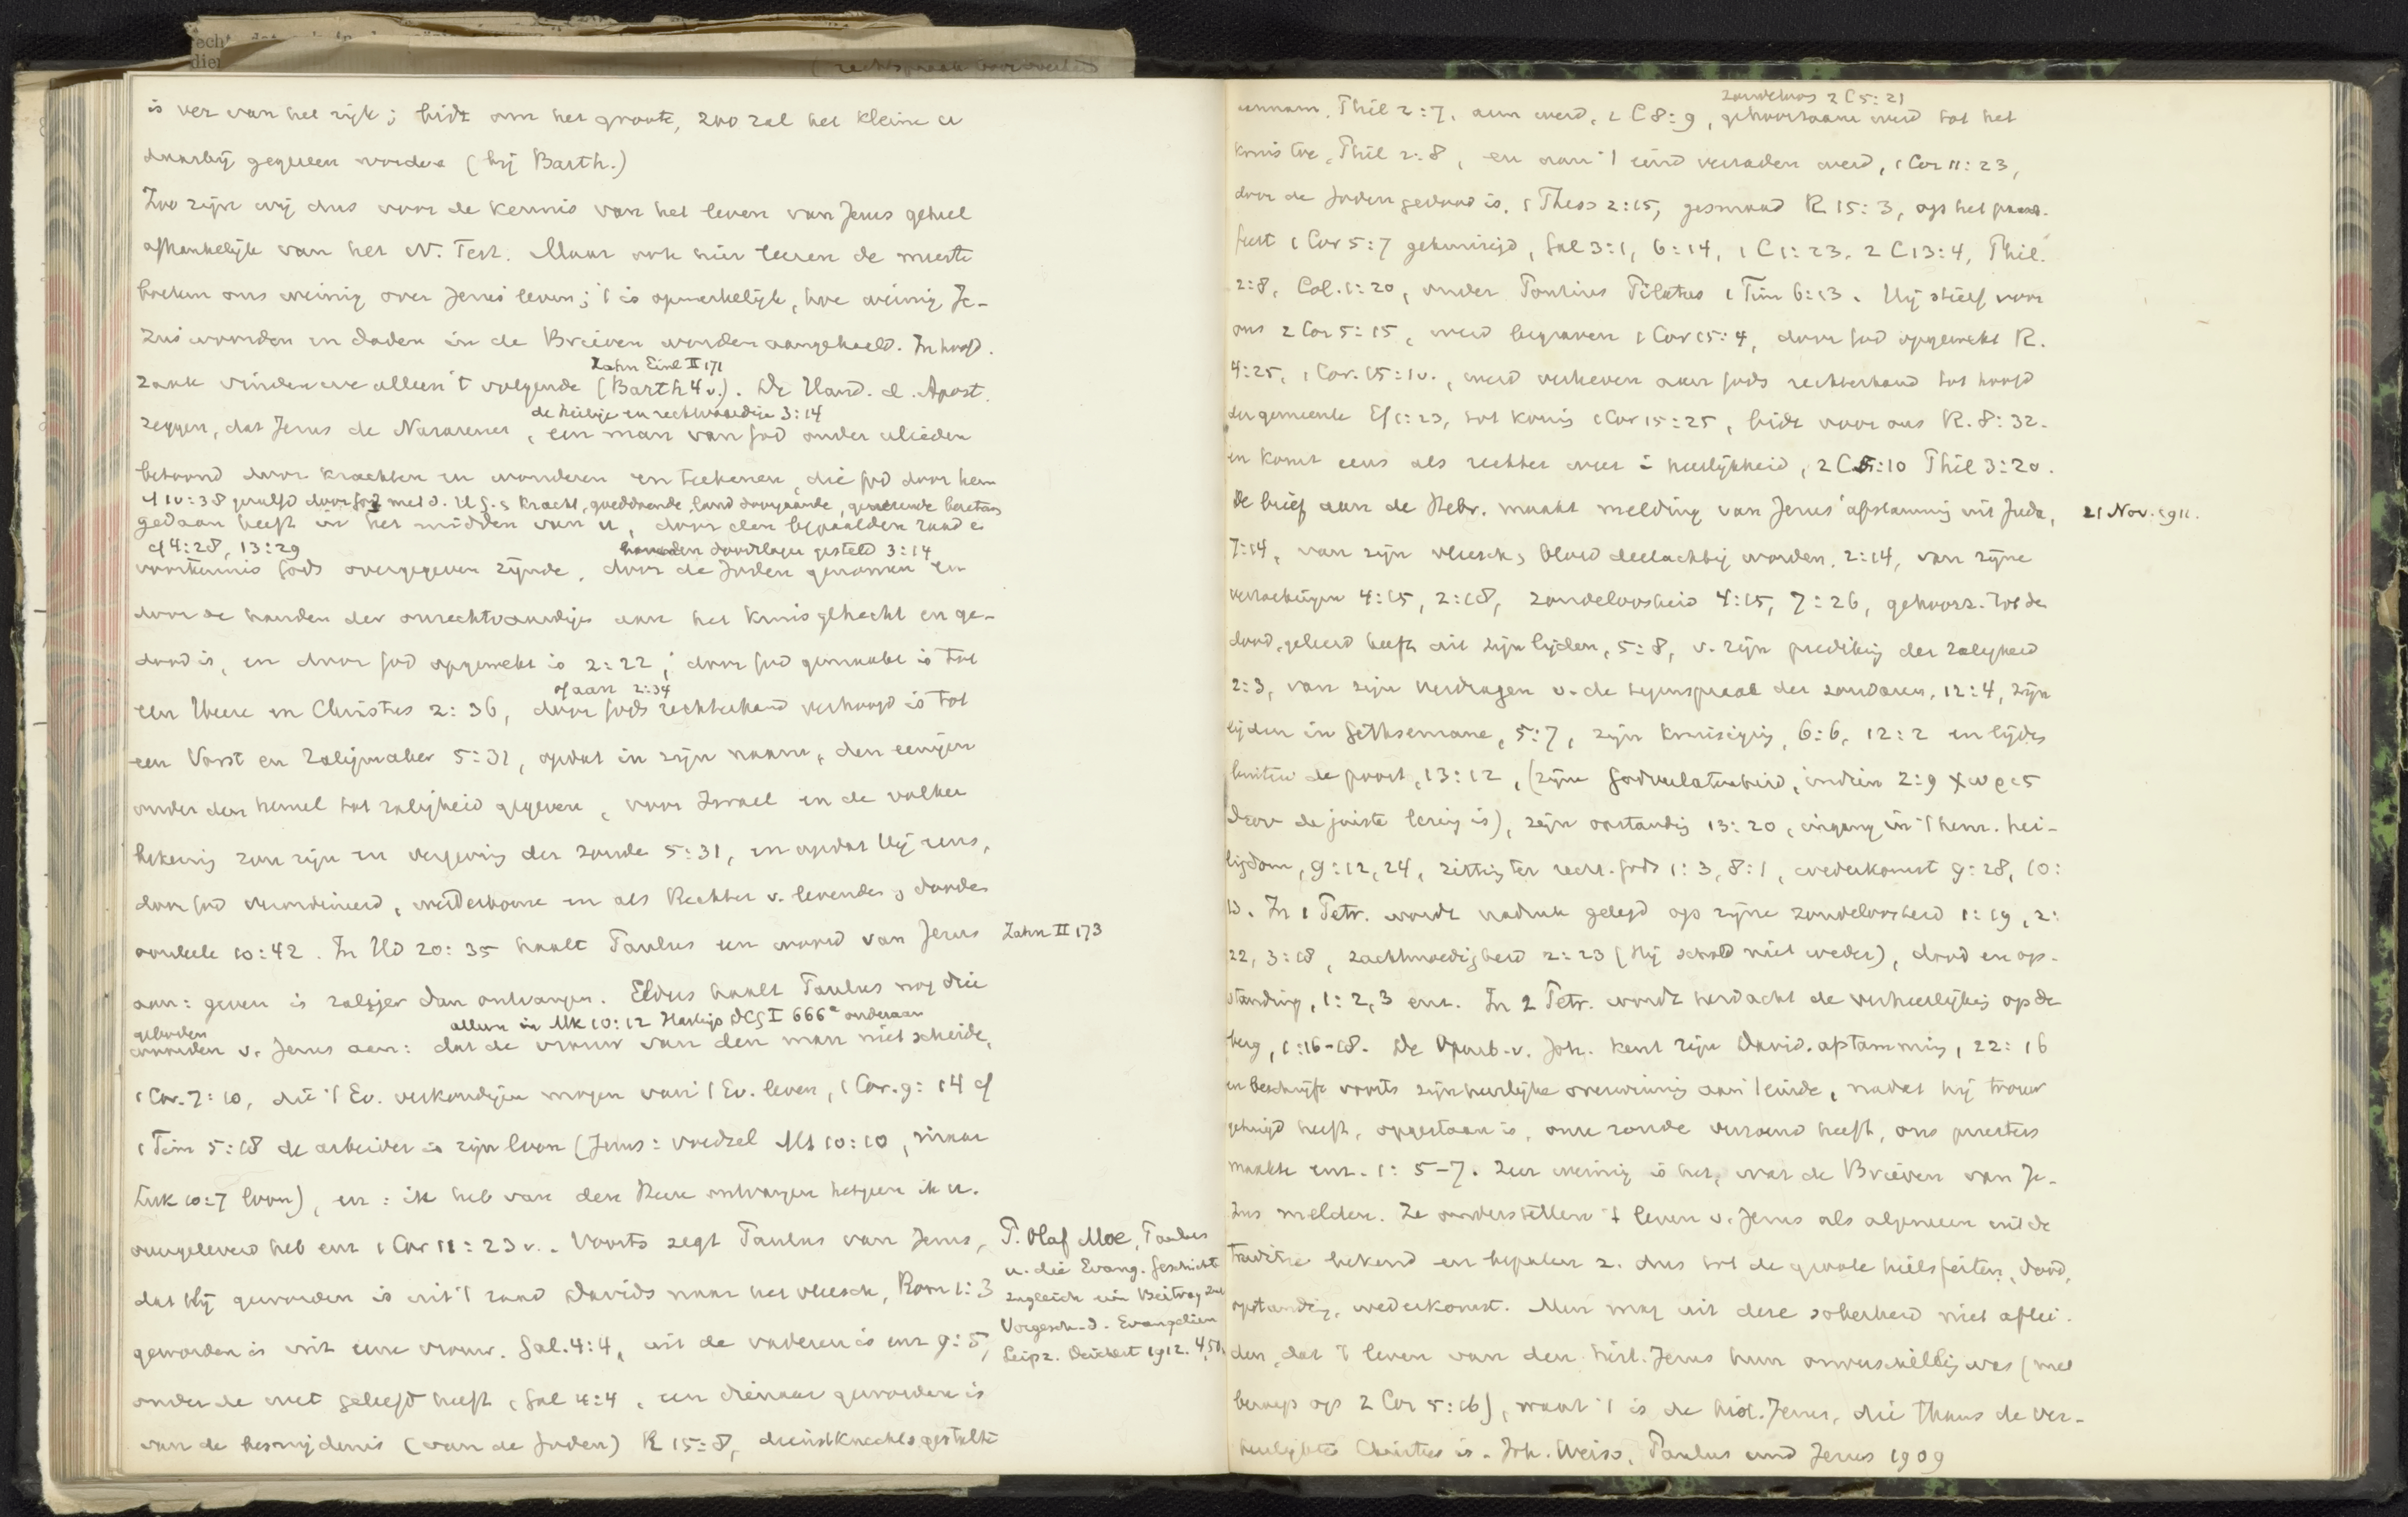 is ver van het rijk; bidt om het groote, zoo zal het kleine u
daarbij gegeven worden (bij Barth.)
Zoo zijn wij dus voor de kennis van het leven van Jezus geheel
afhankelijk van het N. Test. Maar ook hier leeren de meeste
boeken ons weinig over Jezus' leven; 't is opmerkelijk, hoe weinig Je-
zus' woorden en daden in de Brieven worden aangehaald. In hoofd.
Zahn Einl II 171
zaak vinden we alleen 't volgende (Barth 4 v.). De Hand. d. Apost.
de heilige en rechtvaardige 3:14
zeggen, dat Jezus de Nazarener, een man van God onder ulieden
betoond door krachten en wonderen en teekenen, die God door hem
cf 10:38 gezalfd door God met d. H G. & kracht, goeddoende, land doorgaande, genezende bezetenen
gedaan heeft in het midden van u, door den bepaalden raad en
cf 4:28, 13:29
handen doodslager gesteld 3:14
voorkennis Gods overgegeven zijnde, door de Joden genomen en
door de handen der onrechtvaardige aan het kruis gehecht en ge-
dood is, en door God opgewekt is 2:22; door God gemaakt is tot
of aan 2:34
een Heere en Christus 2:36, door Gods rechterhand verhoogd is tot
een Vorst en Zaligmaker 5:31, opdat in zijn naam, den eenigen
onder den hemel tot zaligheid gegeven, voor Israel en de volken
bekeering zou zijn en vergeving der zonde 5:31, en opdat Hij eens,
door God verordineerd, wederkome en als Rechter v. levenden & dooden
oordeele 10:42. In Hd 20:35 haalt Paulus een woord van Jezus
Zahn II 173
aan: geven is zaliger dan ontvangen. Elders haalt Paulus nog drie
geboden
alleen in Mk 10:12 Hastings DCG I 666a onderaan
woorden v. Jezus aan: dat de vrouw van den man niet scheide,
1 Cor. 7:10, die 't Ev. verkondigen mogen van 't Ev. leven, 1 Cor. 9:14 cf
1 Tim 5:18 de arbeider is zijn loon (Jezus: voedsel Mt 10:10, maar
Luk 10:7 loon), en: ik heb van den Heere ontvangen hetgeen ik u.
overgeleverd heb enz 1 Cor 11:23 v.. Voorts zegt Paulus van Jezus,
P. Olaf Moe, Paulus
u. die Evang. Geschichte
zugleich ein Beitrag zur
Vorgesch. d. Evangelien
Leipz. Deichert 1912. 4,50.
dat Hij geworden is uit 't zaad Davids naar het vleesch, Rom 1:3
geworden is uit eene vrouw. Gal. 4:4, uit de vaderen is enz 9:5,
onder de wet geleefd heeft, Gal 4:4, een dienaar geworden is
van de besnijdenis (van de Joden) R 15:8, dienstknechtsgestalte
zondeloos 2 C 5:21
aannam, Phil 2:7, arm werd, 2 C 8:9, gehoorzaam werd tot het
kruis toe, Phil 2:8, en aan 't eind verraden werd, 1 Cor 11:23,
door de Joden gedood is, 1 Thess 2:15, gesmaad R 15:3, op het paasch-
feest 1 Cor 5:7 gekruisigd, Gal 3:1, 6:14, 1 C 1:23, 2 C 13:4, Phil.
2:8, Col. 1:20, onder Pontius Pilatus 1 Tim 6:13. Hij stierf voor
ons 2 Cor 5:15, werd begraven 1 Cor 15:4, door God opgewekt R.
4:25, 1 Cor. 15:1v., werd verheven aan Gods rechterhand tot hoofd
der gemeente Ef 1:23, tot koning 1 Cor 15:25, bidt voor ons R. 8:32.
en komt eens als rechter weer in heerlijkheid, 2 C 5:10 Phil 3:20.
De brief aan de Hebr. maakt melding van Jezus' afstamming uit Juda,
21 Nov. 1911.
7:14, van zijn vleesch & bloed deelachtig worden, 2:14, van zijne
verzoekingen 4:15, 2:18, zondeloosheid 4:15, 7:26, gehoorz. tot de
dood, geleerd heeft uit zijn lijden, 5:8, v. zijn prediking der zaligheid
2:3, van zijn verdragen v. de tegenspraak der zondaren, 12:4, zijn
lijden in Gethsemane, 5:7, zijn kruisiging, 6:6, 12:2 en lijden
buiten de poort, 13:12, (zijne Godverlatenheid, indien 2:9 χωρις
θεου de juiste lezing is), zijn opstanding 13:20, ingang in 't hem. hei-
ligdom, 9:12, 24, zitting ter recht. Gods 1:3, 8:1, wederkomst 9:28, 10:
13. In 1 Petr. wordt nadruk gelegd op zijne zondeloosheid 1:19, 2:
22, 3:18, zachtmoedigheid 2:23 (Hij schold niet weder), dood en op-
standing, 1:2, 3 enz. In 2 Petr. wordt herdacht de verheerlijking op de
berg, 1:16-18. De Openb. v. Joh. kent zijn David. afstamming, 22:16
en beschrijft voorts zijn heerlijke overwinning aan 't einde, nadat hij trouw
getuigd heeft, opgestaan is, onze zonde verzoend heeft, ons priesters
maakte enz. 1:5-7. Zeer weinig is het, wat de Brieven van Je-
zus melden. Ze onderstellen 't leven v. Jezus als algemeen uit de
traditie bekend en bepalen z. dus tot de groote heilsfeiten, dood,
opstanding, wederkomst. Men mag uit deze soberheid niet aflei-
den, dat 't leven van den hist. Jezus hun onverschillig was (met
beroep op 2 Cor 5:16), want 't is de hist. Jezus, die thans de ver-
heerlijkte Christus is. Joh. Weiss, Paulus und Jesus 1909